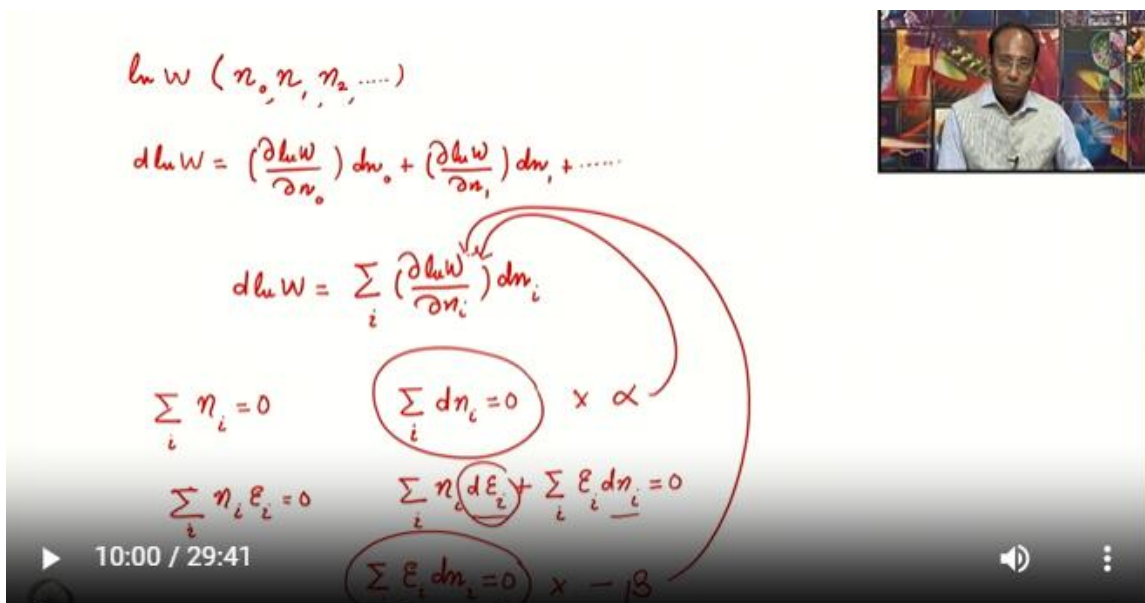 ln W (n₀, n₁, n₂, .....)
d ln W = (∂ ln W / ∂n₀) dn₀ + (∂ ln W / ∂n₁) dn₁ + ......
d ln W = ∑ᵢ (∂ ln W / ∂nᵢ) dnᵢ
∑ᵢ nᵢ = 0 ∑ᵢ dnᵢ = 0 × α
∑ᵢ nᵢ εᵢ = 0 ∑ᵢ nᵢ dεᵢ + ∑ᵢ εᵢ dnᵢ = 0
∑ εᵢ dnᵢ = 0 × - β
10:00 / 29:41